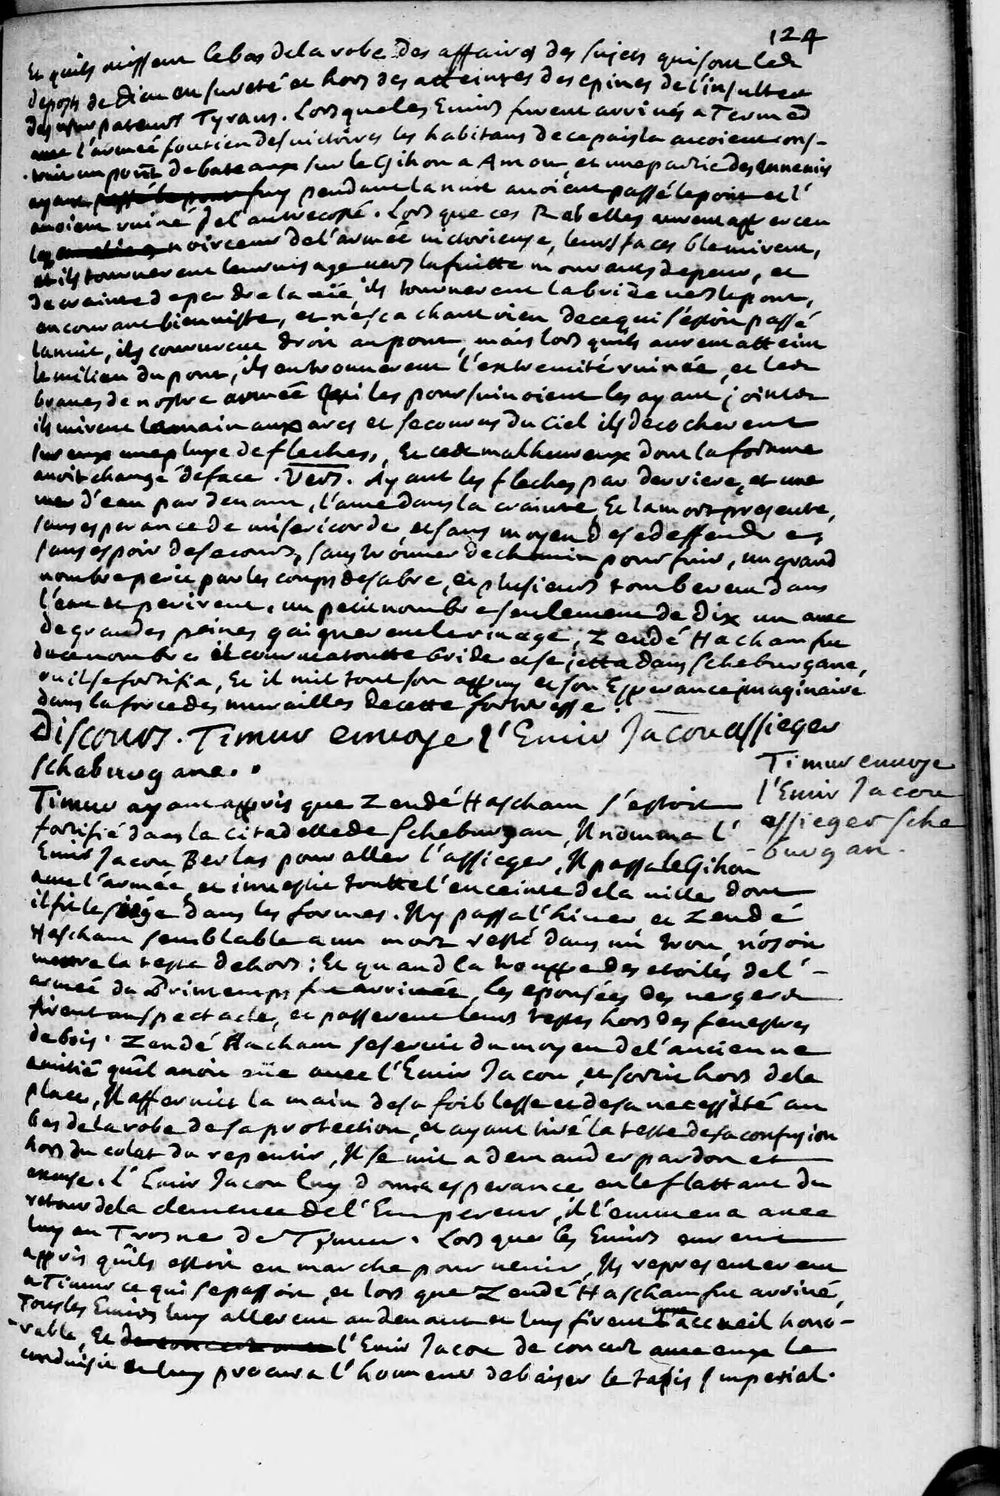 124
Et quils missent le bas de la robe des affaires des sujets qui sont les
deposts de Dieu en sureté et hors des atteintes des epines de l'insulte
des usurpateurs Tyrans. Lors que les Emirs furent arrivés a Termed
avec l'armée soutien des victoires les habitans de ce pais la avoient cons-
truit un pont de bateaux sur le Gihon a Amou, et une partie des ennemis
ayant passé le pont fuy pendant la nuit avoient passé le pont et l'
avoient ruiné de l'autre costé. Lors que ces Rebelles eurent apperceu
la noirceur de l'armée victorieuse, leurs faces blemirent,
et ils tournerent leur visage vers la fuitte mourants de peur, et
de crainte de perdre la vie, ils tournerent la bride vers le pont,
en courant bien viste, et ne sçachant rien de ce qui s'estoit passé
la nuit, ils coururent droit au pont, mais lors quils eurent atteint
le milieu du pont, ils en trouverent l'extremité ruinée, et les
braves de nostre armée qui les poursuivoient les ayant joints
ils mirent la main aux arcs et secourus du Ciel ils decocherent
sur eux une pluye de fleches, Et ces malheureux dont la fortune
avoit changé de face. Vers. Ayant les fleches par derriere, et une
mer d'eau par devant, l'ame dans la crainte, Et la mort presente,
sans esperance de misericorde, et sans moyen de se deffendre
sans espoir de secours, sans trouver de chemin pour fuir, un grand
nombre perit par les coups de sabre, et plusieurs tomberent dans
l'eau et perirent, un petit nombre seulement de Dix un avec
de grandes peines gaignerent le rivage; Zendé Hacham fut
de ce nombre il courut a toutte bride et se jetta dans Scheburgane,
ou il se fortifia, Et il mit tout son appuy et son Esperance imaginaire
dans la force des murailles de cette forteresse.
Discours. Timur envoye l'Emir Jacou assieger
Scheburgane.
Timur envoye
l'Emir Jacou
assieger Sche
burgan.
Timur ayant appris que Zendé Hascham s'estoit
fortifié dans la citadelle de Scheburgan, Il nomma l'
Emir Jacou Berlas pour aller l'assieger, Il passa le Gihon
avec l'armée, et investit toutte l'enceinte de la ville dont
il fit le siége dans les formes. Il y passa l'hiver et Zendé
Hascham semblable a un mort resté dans un trou, n'osoit
mettre la teste dehors; Et quand la trouppe des etoiles de l'-
armée du Printemps fut arrivée, les epousées des vergers
firent au spectacle, et passerent leurs testes hors des fenestres
de bois. Zendé Hacham se servit du moyen de l'ancienne
amitié qu'il avoit eüe avec l'Emir Jacou, et sortit hors de la
place, Il affermit la main de sa foiblesse et de sa necessité au
bas de la robe de sa protection, et ayant tiré la teste de sa confusion
hors du colet du repentir, Il se mit a demander pardon et
excuse. L'Emir Jacou luy donna esperance en le flattant du
retour de la clemence de l'Empereur, il l'emmena avec
luy au Trosne de Timur. Lors que les Emirs eurent
appris qu'ils estoit en marche pour venir, Ils representerent
a Timur ce qui se passoit, et lors que Zendé Hascham fut arrivé,
Tous les Emirs luy allerent au devant et luy firent un accueil hono-
rable, Et l'Emir Jacou de concert avec eux le
conduisit et luy procura l'honneur de baiser le tapis Imperial.